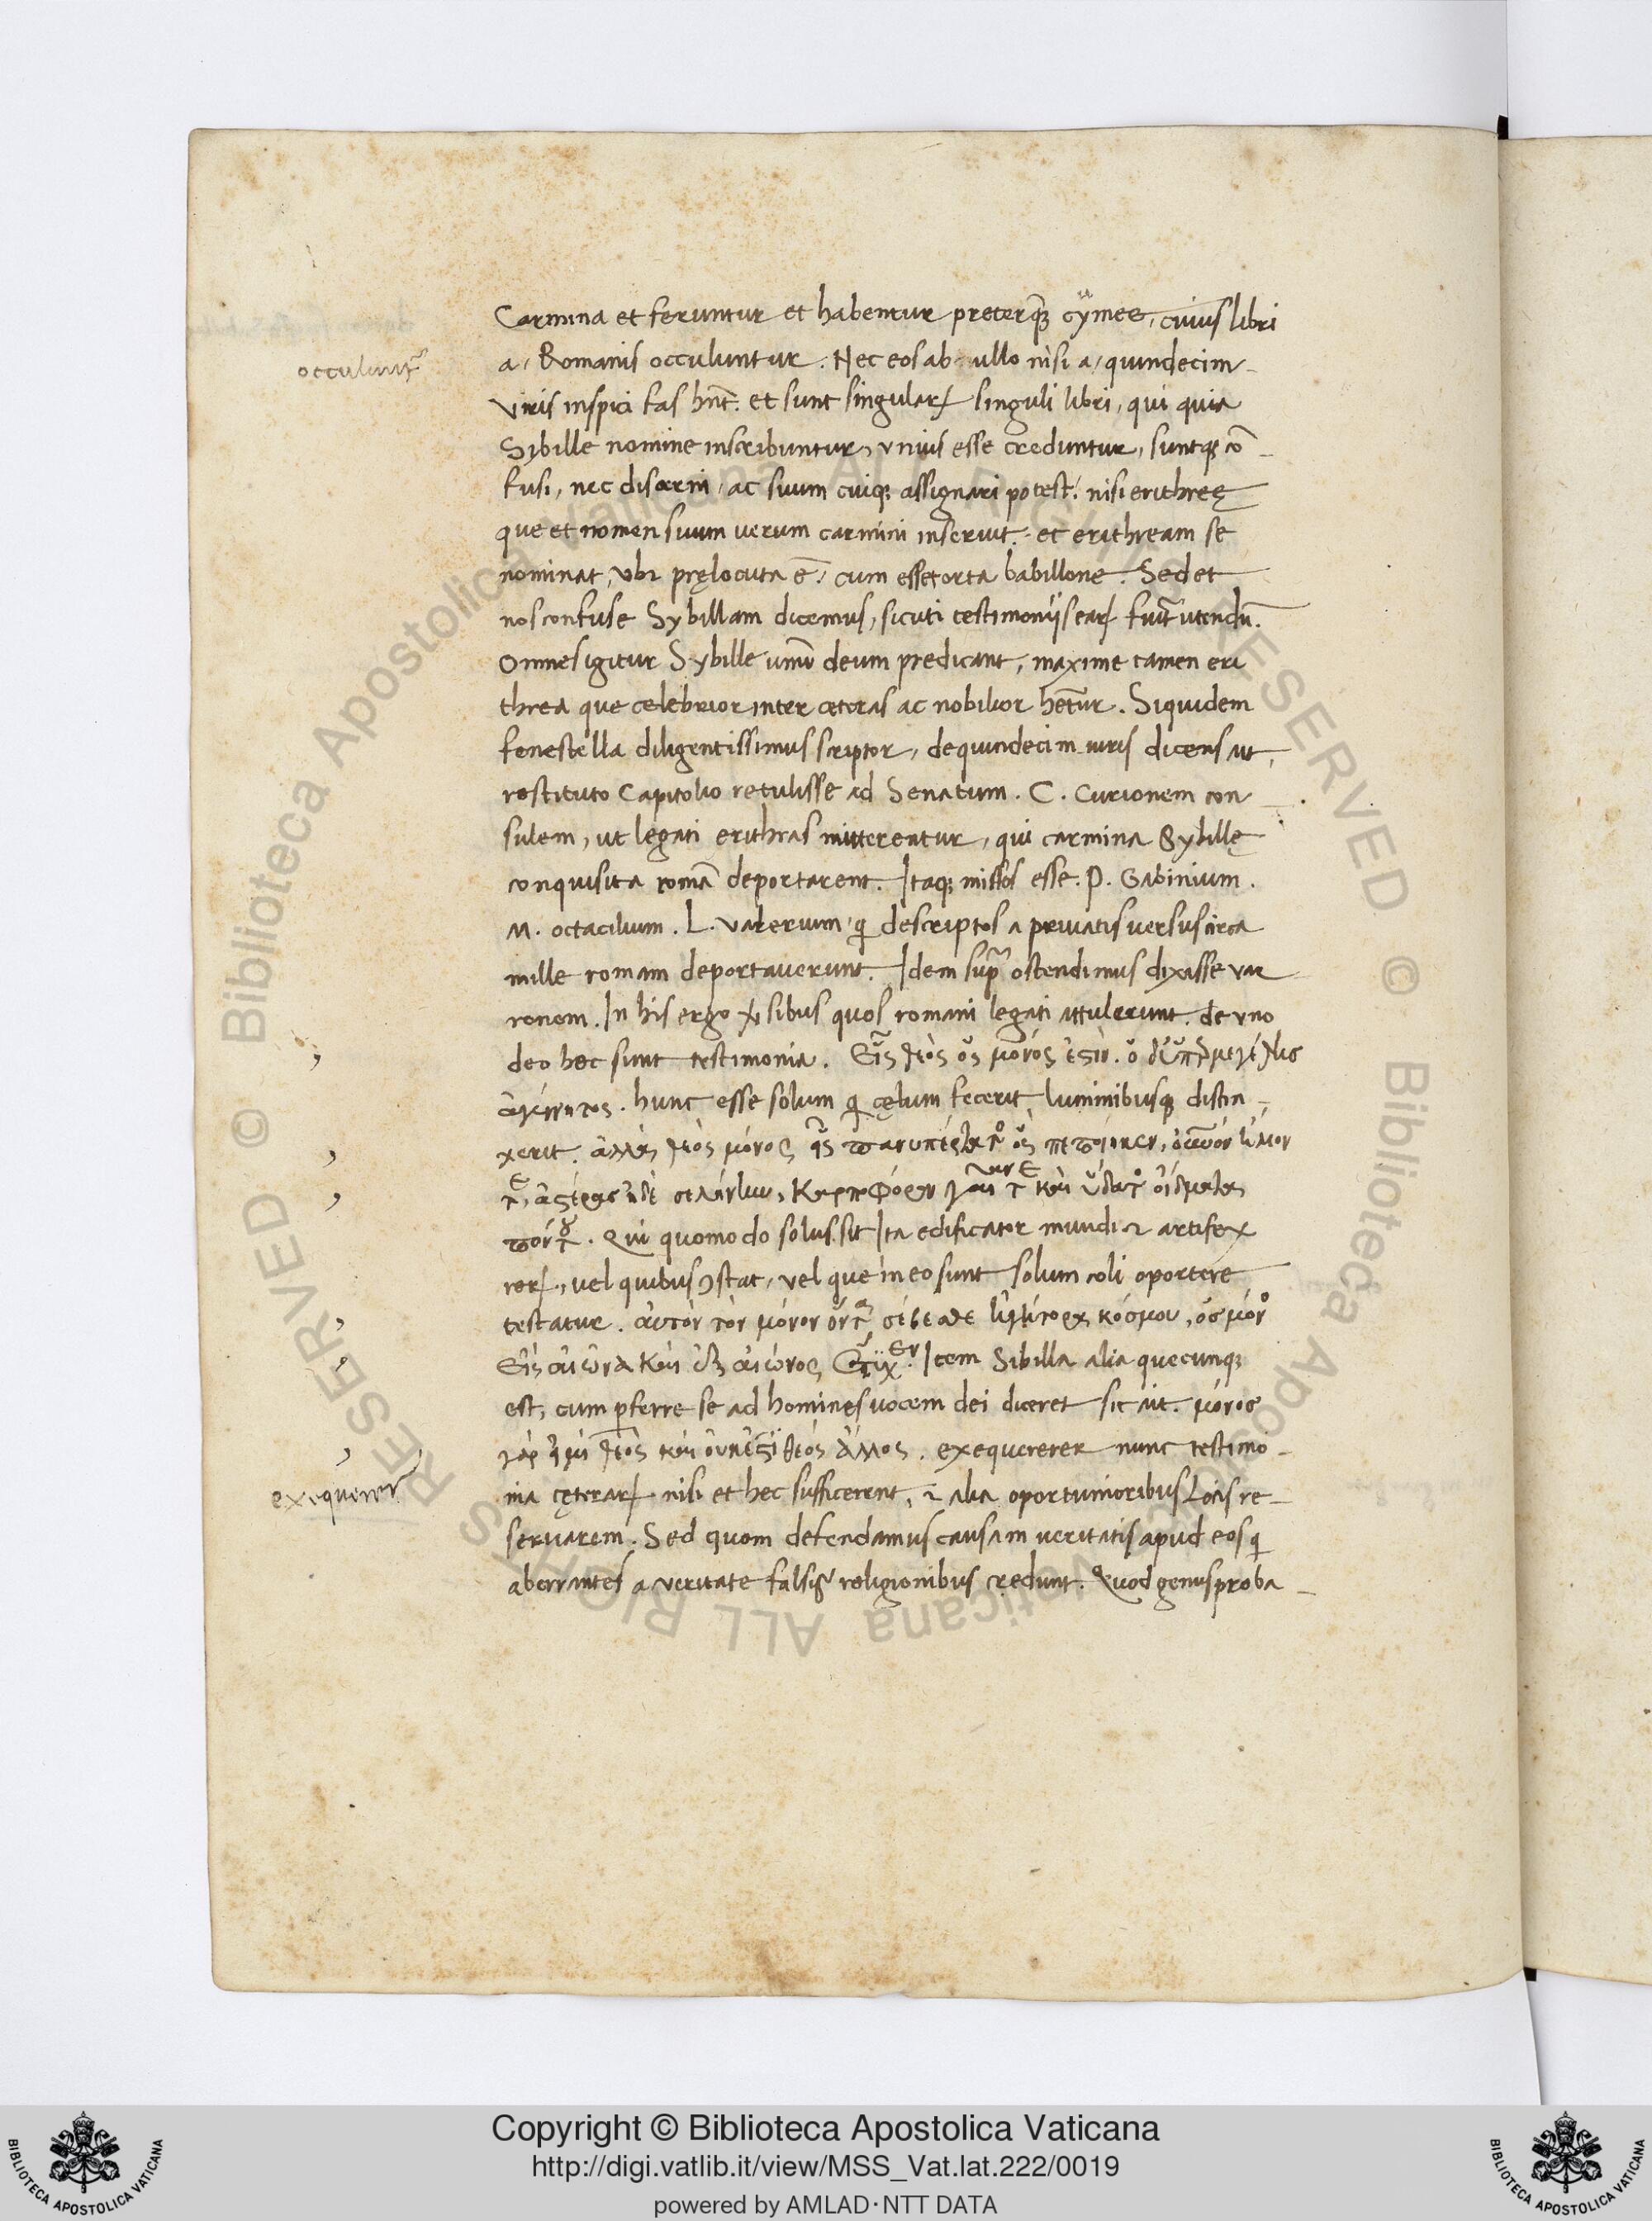 Carmina et feruntur et habentur preterq̃ȝ cymee, cuius libri
occulunt᷑
a Romanis occuluntur. Nec eos ab ullo nisi a quindecim
viris inspici fas hñt. et sunt singularꝝ singuli libri, qui quia
Sybille nomine inscribuntur, unius esse creduntur, suntqȝ cō
fusi, nec discerni, ac suum cuiqȝ assignari potest. nisi erithreę
que et nomen suum uerum carmini inseruit. et erithream se
nominat, ubi pręlocuta ē. cum esset orta babillone. Sed et
nos confuse Sybillam dicemus, sicuti testimonijs earꝝ fuit utendũ.
Omnes igitur Sybille unũ deum predicant, maxime tamen eri
threa que celebrior inter ceteras ac nobilior hẽtur. Siquidem
fenestella diligentissimus scriptor, de quindecim uiris dicens ait,
restituto Capitolio retulisse ad Senatum. C. Curionem con
sulem, ut legati erithras mitterentur, qui carmina Sybillę
conquisita romã deportarent. Itaqȝ missos esse. P. Gabinium.
M. octacilium. L. valerium, qi descriptos a priuatis uersus circa
mille romam deportauerunt. Idem sup̃ ostendimus dixisse var
ronem. In his ergo ỽsibus quos romani legati attulerunt. de uno
deo hec sunt testimonia. Εἷς θεὸς ὃς μόνός ἐστὶν. ὑπερμεγέθης
ἀγέννητος. hunc esse solum qi cęlum fecerit, luminibusqȝ distin
xerit. ἀλλὰ θεὸς μόνος εἷς πανυπέρτατος ὃς πεποίηκεν, οὐρανὸν ἥλιον
τε, ἀστέρας ἠδὲ σελήνην, καρποφόρον γαῖαν τε καὶ ὕδατος οἴδματα
πόντου. Qui quomodo solus sit Ita edificator mundi ⁊ artifex
rerꝝ, uel quibus ꝯstat, vel que in eo sunt solum coli oportere
testatur. αὐτὸν τὸν μόνον ὄντα σέβεσθε ἡγήτορα κόσμου, ὃς μόνος
Εἰς αἰῶνα καὶ ἐξ αἰῶνος ἐτύχθη. Item Sibilla alia quecunqȝ
est, cum ꝑferre se ad homines uocem dei diceret sic ait. μόνος
γὰρ εἰμὶ θεὸς καὶ οὐκ ἐστὶ θεὸς ἄλλος. exequererer nunc testimo
exequerer
nia cęterarꝝ nisi et hec sufficerent, ⁊ alia oportunioribus Locis re
seruarem. Sed quom defendamus causam ueritatis apud eos qi
aberrantes a ueritate falsis religionibus credunt. Quod genus proba
Copyright © Biblioteca Apostolica Vaticana
http://digi.vatlib.it/view/MSS_Vat.lat.222/0019
powered by AMLAD·NTT DATA
BIBLIOTECA APOSTOLICA VATICANA
BIBLIOTECA APOSTOLICA VATICANA
© Biblioteca Apostolica Vaticana ALL RIGHTS RESERVED
© Biblioteca Apostolica Vaticana ALL RIGHTS RESERVED